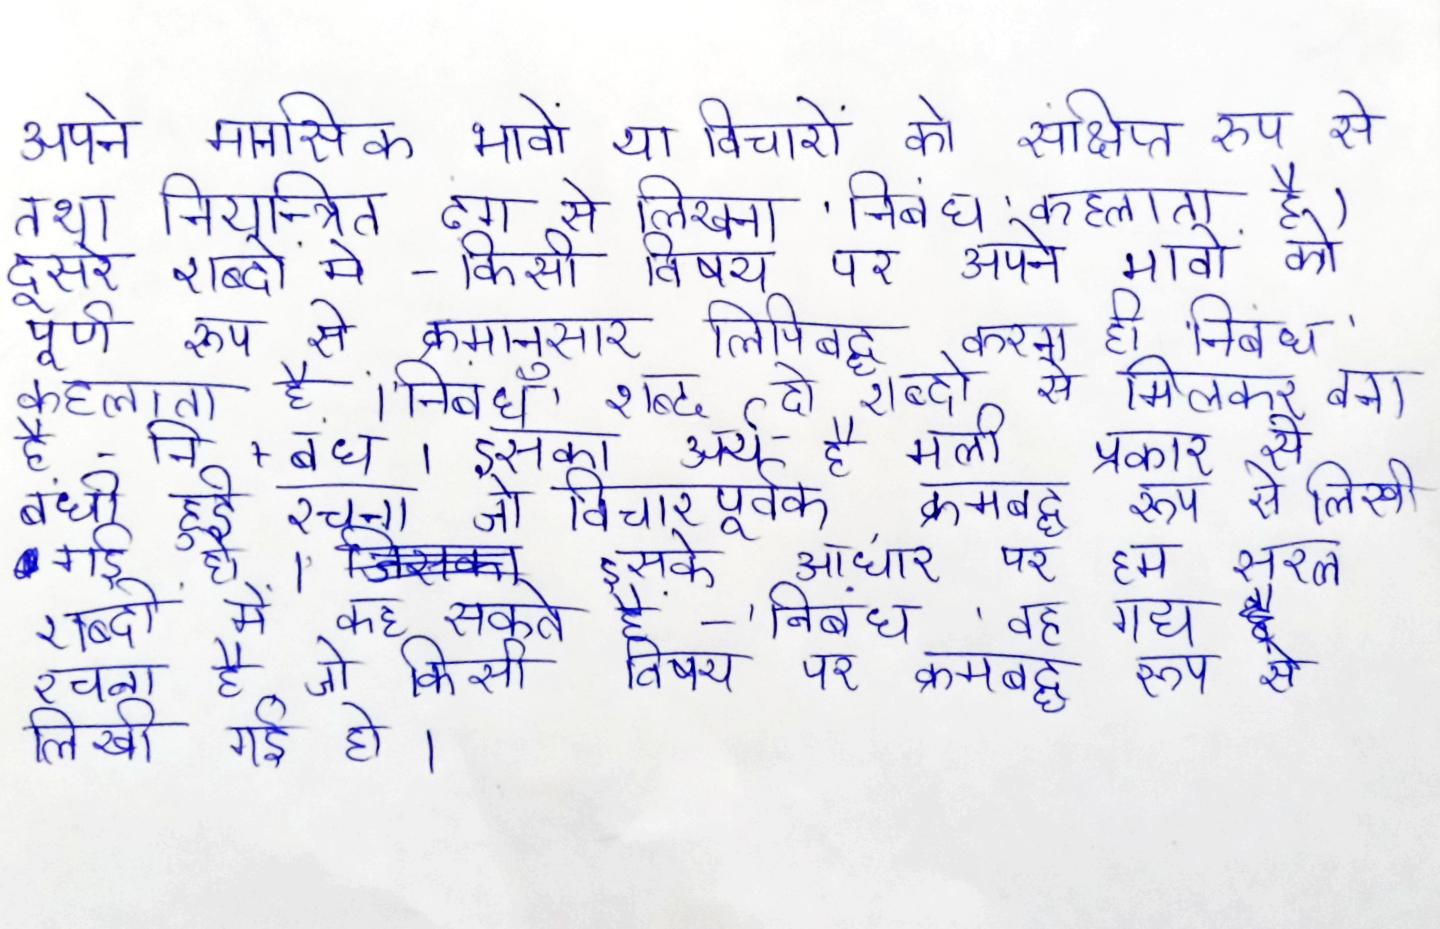 अपने मानसिक भावों या विचारों को संक्षिप्त रुप से
तथा नियन्त्रित ढंग से लिखना 'निबंध' कहलाता है।
दूसरे शब्दों मे - किसी विषय पर अपने भावों को
पूर्ण रूप से क्रमानुसार लिपिबद्ध करना ही 'निबंध'
कहलाता है । 'निबंध' शब्द दो शब्दों से मिलकर बना
है - नि + बंध । इसका अर्थ है भली प्रकार से
बंधी हुई रचना जो विचारपूर्वक क्रमबद्ध रूप से लिखी
गई हो । इसके आधार पर हम सरल
शब्दों में कह सकते हैं - 'निबंध' वह गद्य
रचना है जो किसी विषय पर क्रमबद्ध रूप से
लिखी गई हो ।